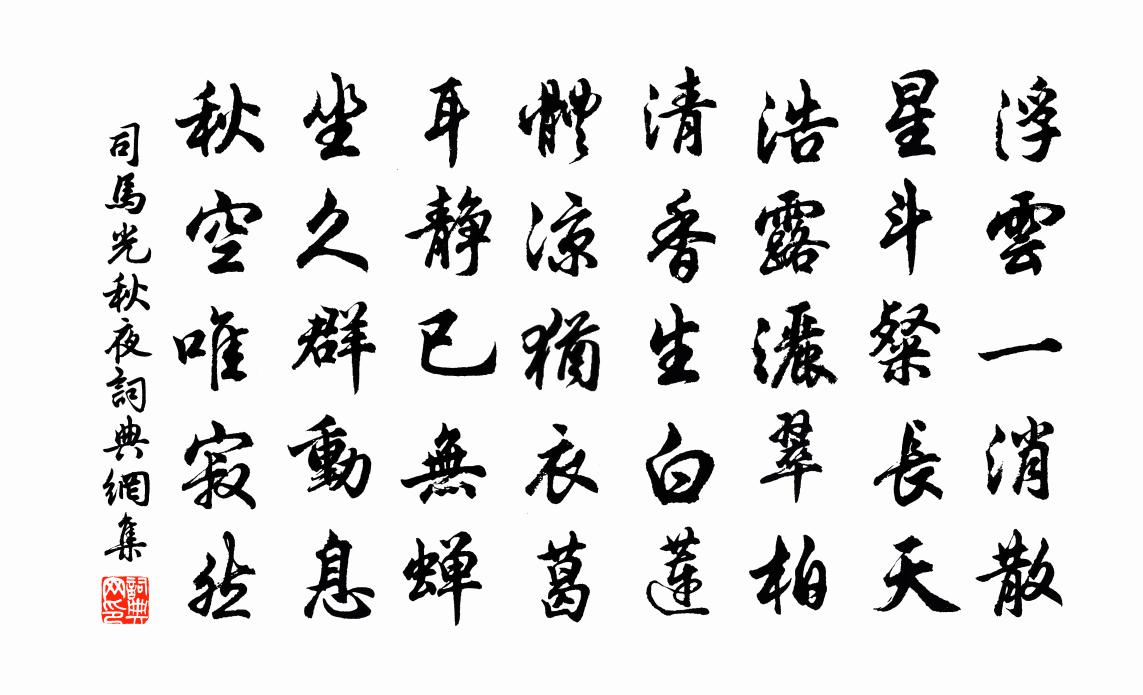 浮雲一消散
星斗粲長天
浩露灑翠柏
清香生白蓮
體涼猶衣葛
耳静已無蟬
坐久群動息
秋空唯寂然
司馬光秋夜詞典網集
詞典网印